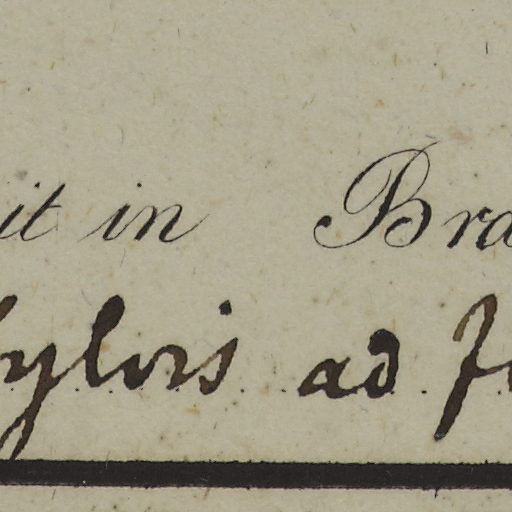 it in Bra
ylvis ad f